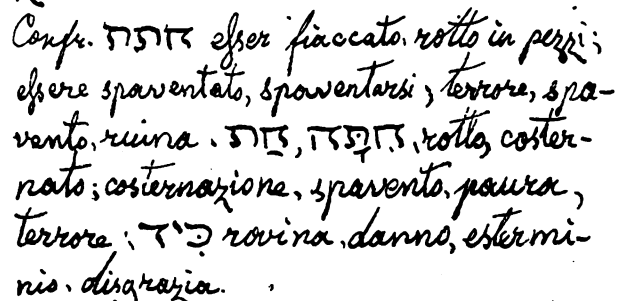 Confr. חתת esser fiaccato, rotto in pezzi;
essere spaventato, spaventarsi; terrore, spa-
vento, ruina. חַת, חִתָּה, rotto, coster-
nato; costernazione, spavento, paura,
terrore; כִּיד rovina, danno, estermi-
nio, disgrazia.